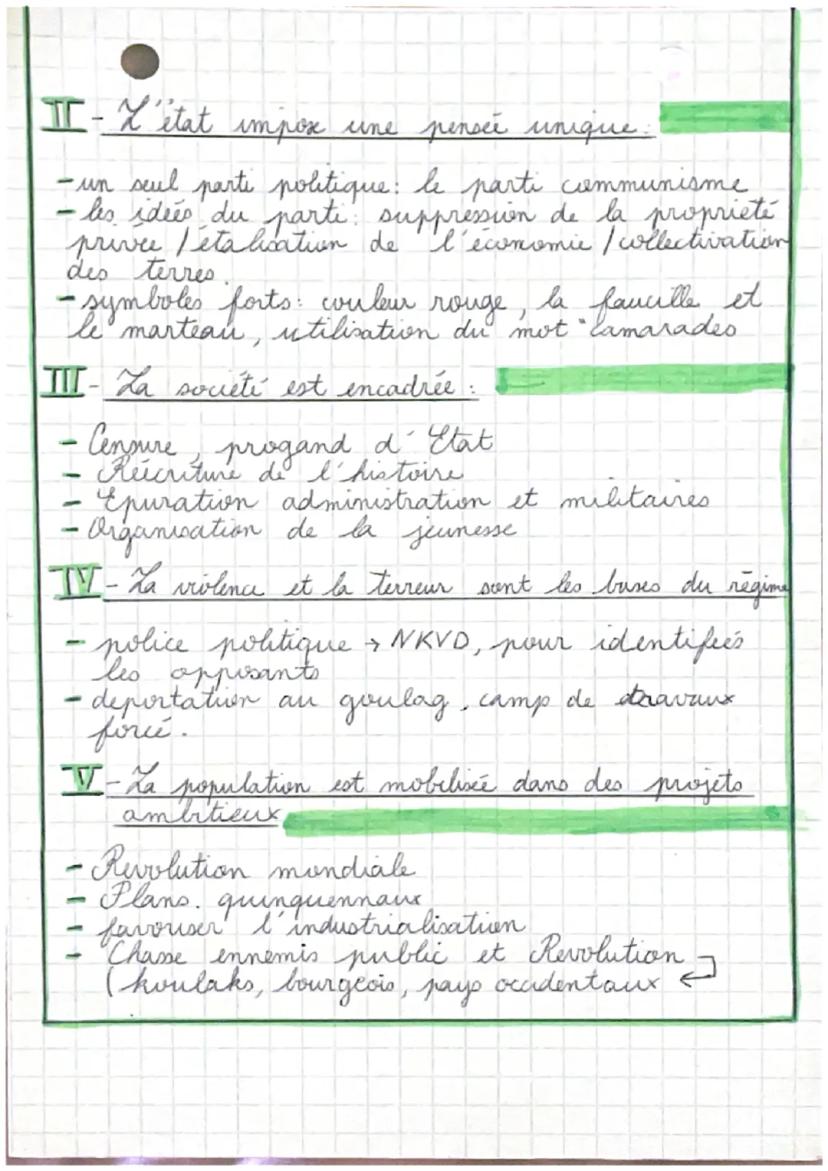 II - L'état impose une pensée unique :
- un seul parti politique : le parti communisme
- les idées du parti : suppression de la propriété
privée / étalisation de l'économie / collectivation
des terres.
- symboles forts : couleur rouge, la faucille et
le marteau, utilisation du mot "camarades
III - La société est encadrée :
- Censure, progand d'Etat
- Réécriture de l'histoire
- Epuration administration et militaires
- Organisation de la jeunesse
IV - La violence et la terreur sont les bases du régime
- police politique → NKVD, pour identifiées
les opposants
- deportation au goulag, camp de travaux
forcé.
V - La population est mobilisée dans des projets
ambitieux
- Revolution mondiale
- Plans. quinquennaux
- favoriser l'industrialisation
- Chasse ennemis public et Revolution
(koulaks, bourgeois, pays occidentaux